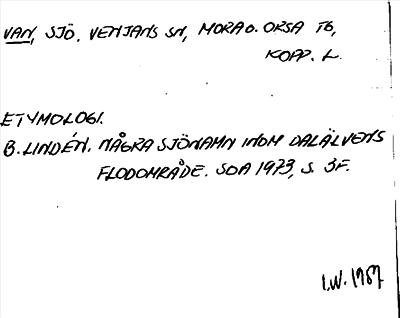 VAN, SJÖ. VENJANS SN, MORA O. ORSA TG,
KOPP. L.
ETYMOLOGI.
B. LINDÉN. NÅGRA SJÖNAMN INOM DALÄLVENS
FLODOMRÅDE. SOA 1973, S. 3F.
I.W. 1987